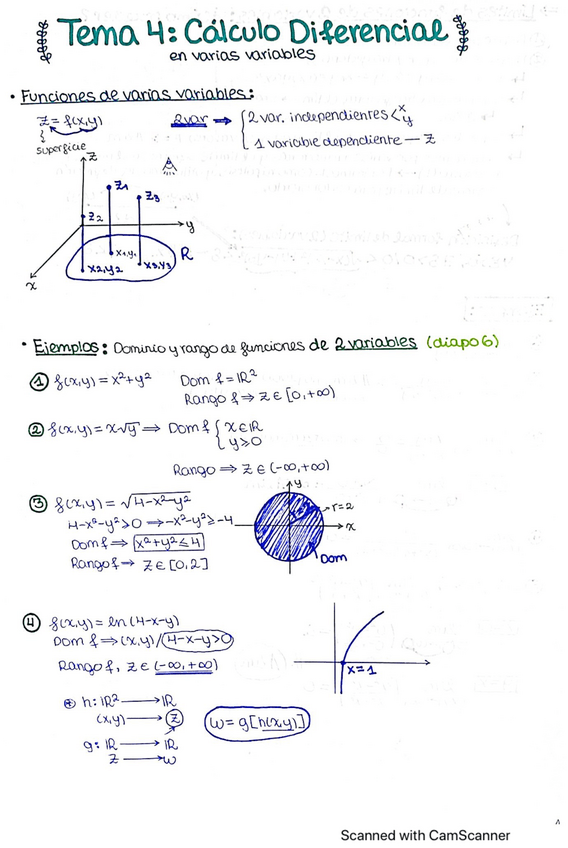 Tema 4: Cálculo Diferencial
en varias variables
• Funciones de varias variables:
z = f(x,y)
superficie
2 var → { 2 var. independientes < x y
1 variable dependiente — z
z
z1
z2
z3
y
x1,y1
x2,y2
x3,y3
R
x
• Ejemplos: Dominio y rango de funciones de 2 variables (diapo 6)
① f(x,y) = x²+y² Dom f = IR²
Rango f ⇒ z ∈ [0,+∞)
② f(x,y) = x√y ⇒ Dom f { x ∈ IR
y ≥ 0
Rango ⇒ z ∈ (-∞,+∞)
③ f(x,y) = √4-x²-y²
4-x²-y² ≥ 0 → -x²-y² ≥ -4
Dom f ⇒ x²+y² ≤ 4
Rango f ⇒ z ∈ [0,2]
y
r=2
x
Dom
④ f(x,y) = ln(4-x-y)
Dom f ⇒ (x,y) / 4-x-y>0
Rango f, z ∈ (-∞,+∞)
x=1
⊕ h: IR² → IR
(x,y) → z
g: IR → IR
z → w
w = g[h(x,y)]
Scanned with CamScanner